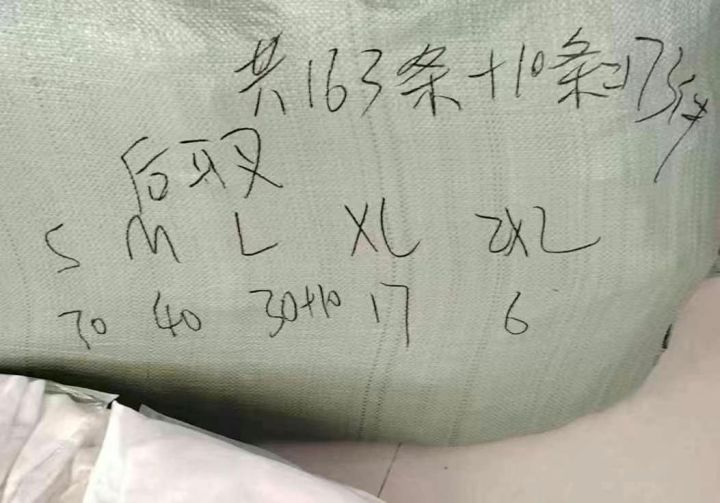 共163条+10条=173条
后取
S M L XL 2XL
70 40 30+10 17 6